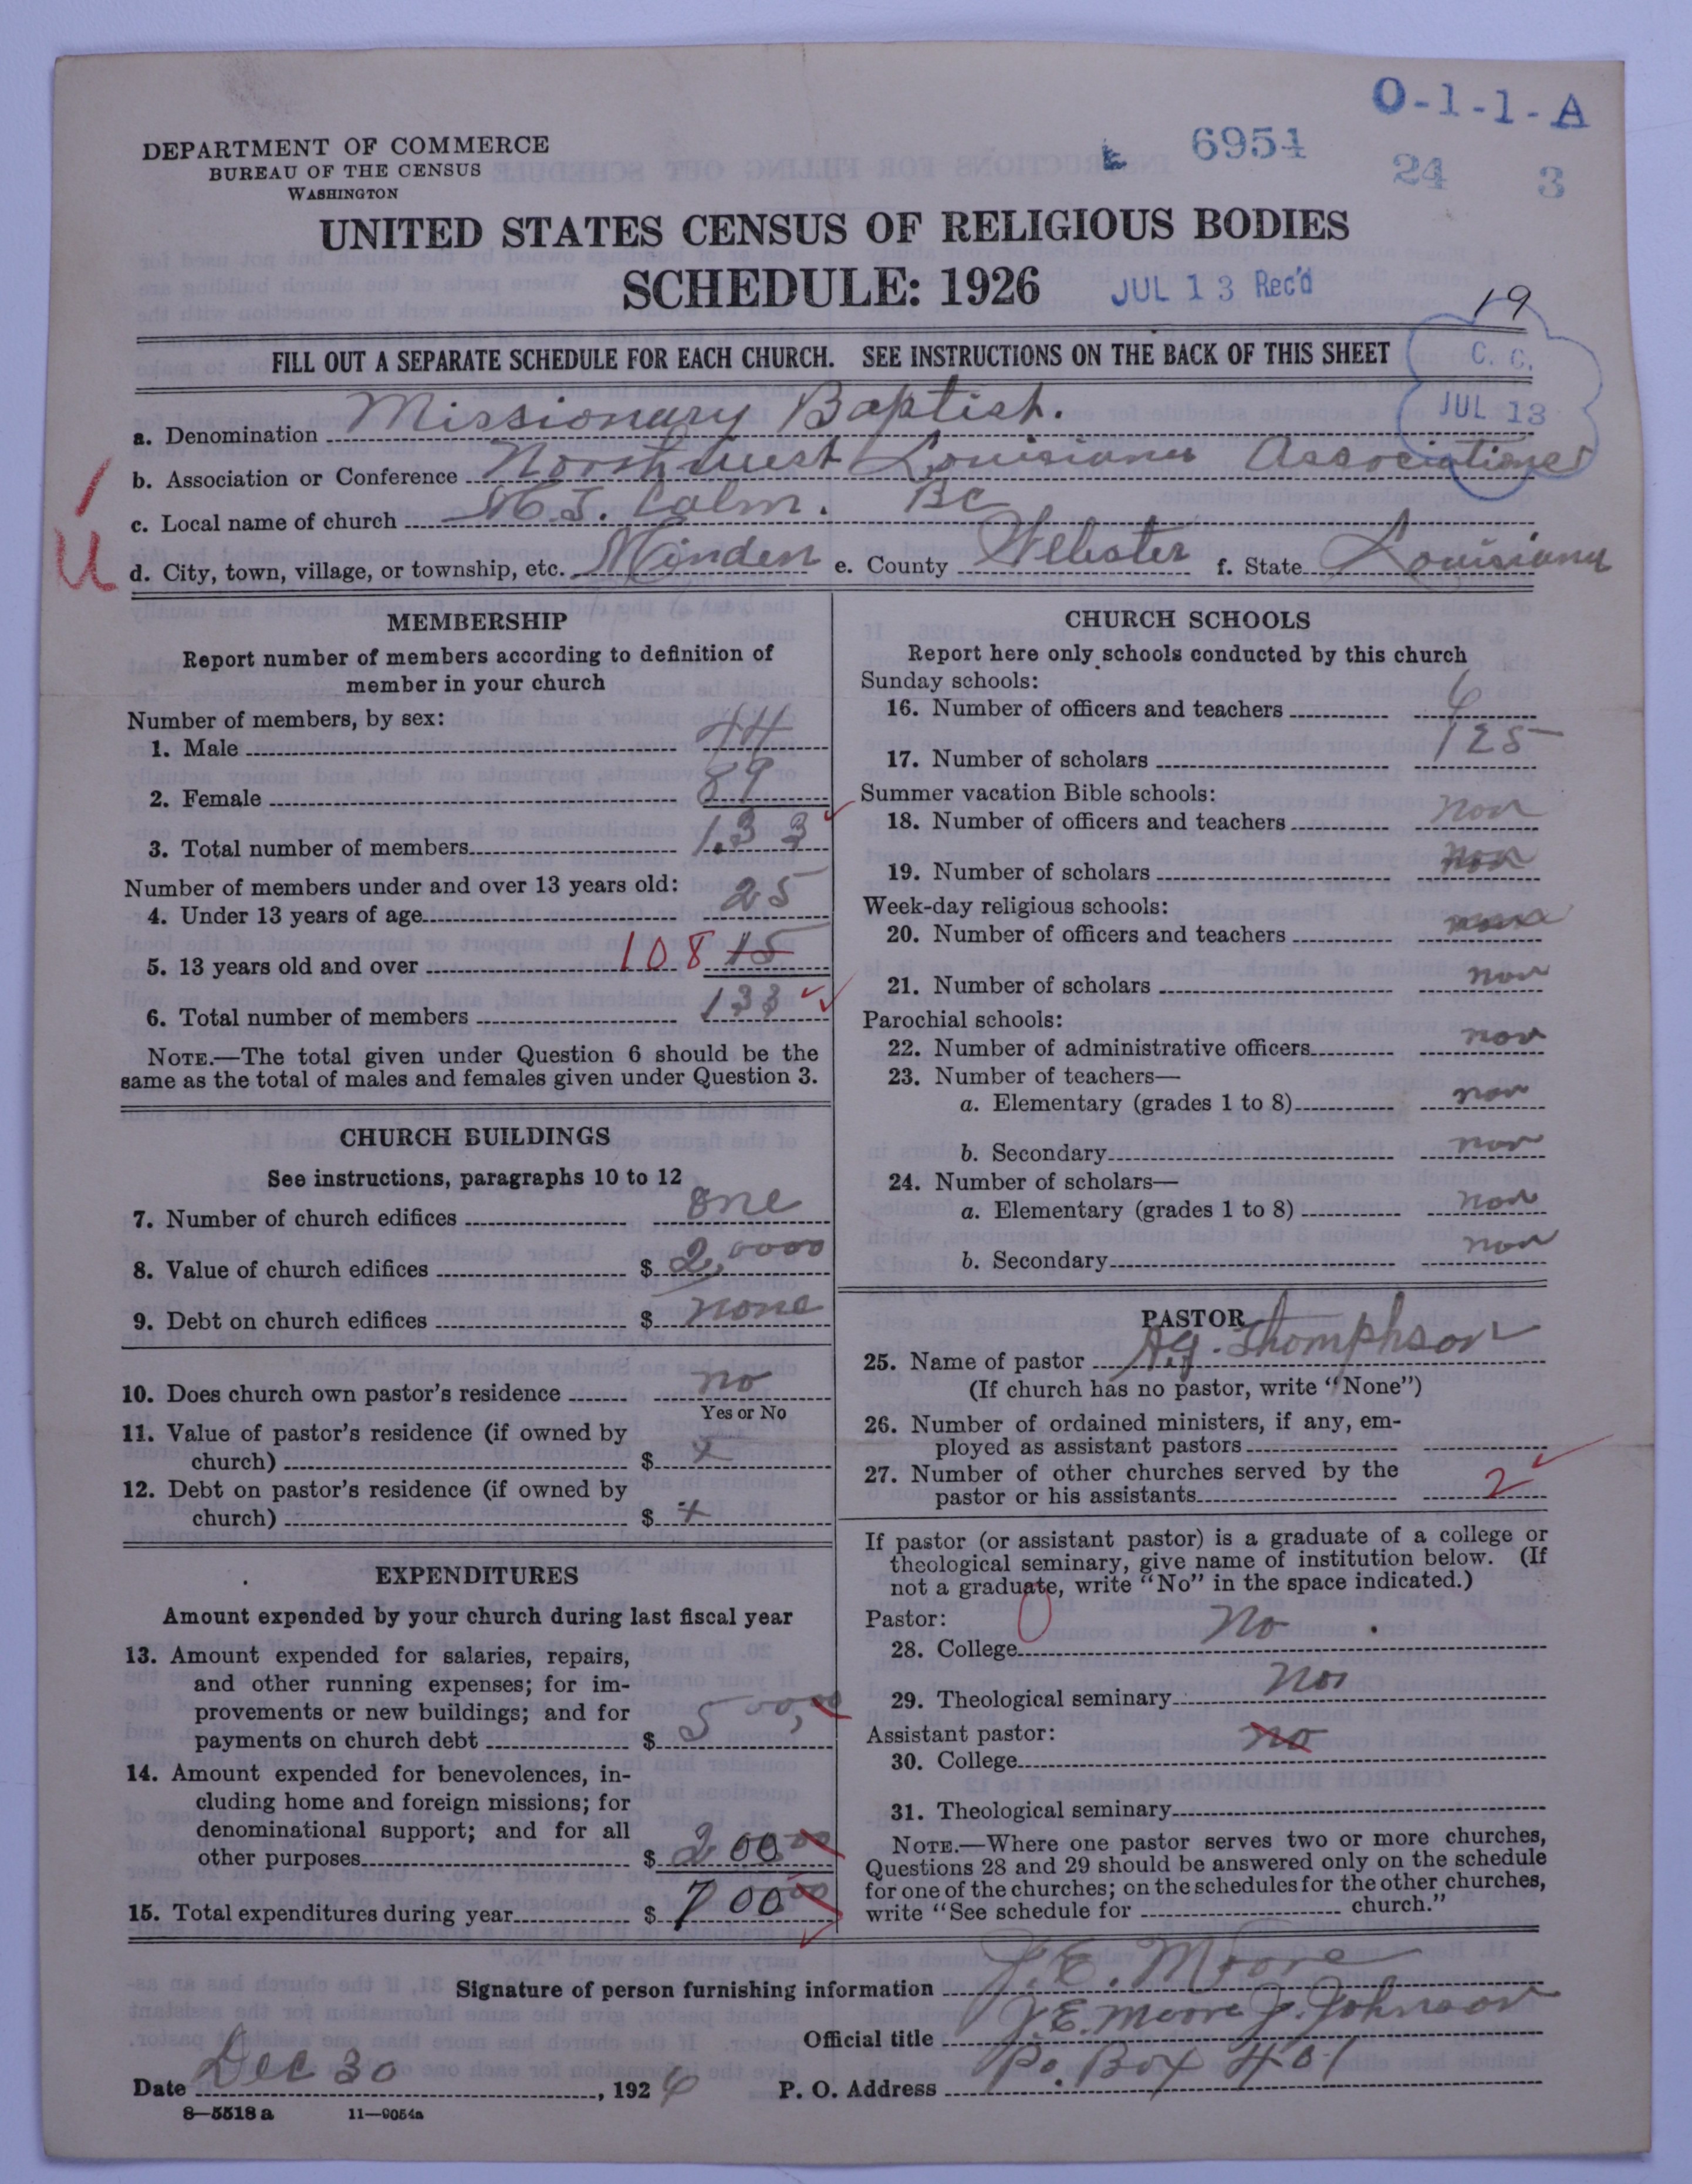 O-1-1-A
6951
24 3
DEPARTMENT OF COMMERCE
BUREAU OF THE CENSUS
WASHINGTON
UNITED STATES CENSUS OF RELIGIOUS BODIES
SCHEDULE: 1926
JUL 13 Rec'd
19
FILL OUT A SEPARATE SCHEDULE FOR EACH CHURCH. SEE INSTRUCTIONS ON THE BACK OF THIS SHEET
C. C.
JUL 13
a. Denomination Missionary Baptist.
b. Association or Conference Northwest Louisiana Association
c. Local name of church Mt. Calm. BC
d. City, town, village, or township, etc. Minden e. County Webster f. State Louisiana
U
MEMBERSHIP
Report number of members according to definition of
member in your church
Number of members, by sex:
1. Male 44
2. Female 89
3. Total number of members 133
Number of members under and over 13 years old:
4. Under 13 years of age 25
5. 13 years old and over 108 15
6. Total number of members 133
NOTE.—The total given under Question 6 should be the
same as the total of males and females given under Question 3.
CHURCH BUILDINGS
See instructions, paragraphs 10 to 12
7. Number of church edifices one
8. Value of church edifices $ 2,0000
9. Debt on church edifices $ none
10. Does church own pastor's residence no
Yes or No
11. Value of pastor's residence (if owned by
church) $ x
12. Debt on pastor's residence (if owned by
church) $ x
EXPENDITURES
Amount expended by your church during last fiscal year
13. Amount expended for salaries, repairs,
and other running expenses; for im-
provements or new buildings; and for
payments on church debt $ 500,00
14. Amount expended for benevolences, in-
cluding home and foreign missions; for
denominational support; and for all
other purposes $ 200 00
15. Total expenditures during year $ 700 00
CHURCH SCHOOLS
Report here only schools conducted by this church
Sunday schools:
16. Number of officers and teachers 6
17. Number of scholars 125
Summer vacation Bible schools:
18. Number of officers and teachers non
19. Number of scholars non
Week-day religious schools:
20. Number of officers and teachers none
21. Number of scholars non
Parochial schools:
22. Number of administrative officers non
23. Number of teachers—
a. Elementary (grades 1 to 8) non
b. Secondary non
24. Number of scholars—
a. Elementary (grades 1 to 8) non
b. Secondary non
PASTOR
25. Name of pastor A.G. Thomphson
(If church has no pastor, write "None")
26. Number of ordained ministers, if any, em-
ployed as assistant pastors
27. Number of other churches served by the
pastor or his assistants 2
If pastor (or assistant pastor) is a graduate of a college or
theological seminary, give name of institution below. (If
not a graduate, write "No" in the space indicated.)
Pastor:
28. College No
29. Theological seminary Non
Assistant pastor:
30. College no
31. Theological seminary
NOTE.—Where one pastor serves two or more churches,
Questions 28 and 29 should be answered only on the schedule
for one of the churches; on the schedules for the other churches,
write "See schedule for church."
Signature of person furnishing information J. E. Moore
Official title J. E. Moore J. Johnson
Date Dec 30, 1926 P. O. Address Po. Box 401
8—5518a 11—9054a